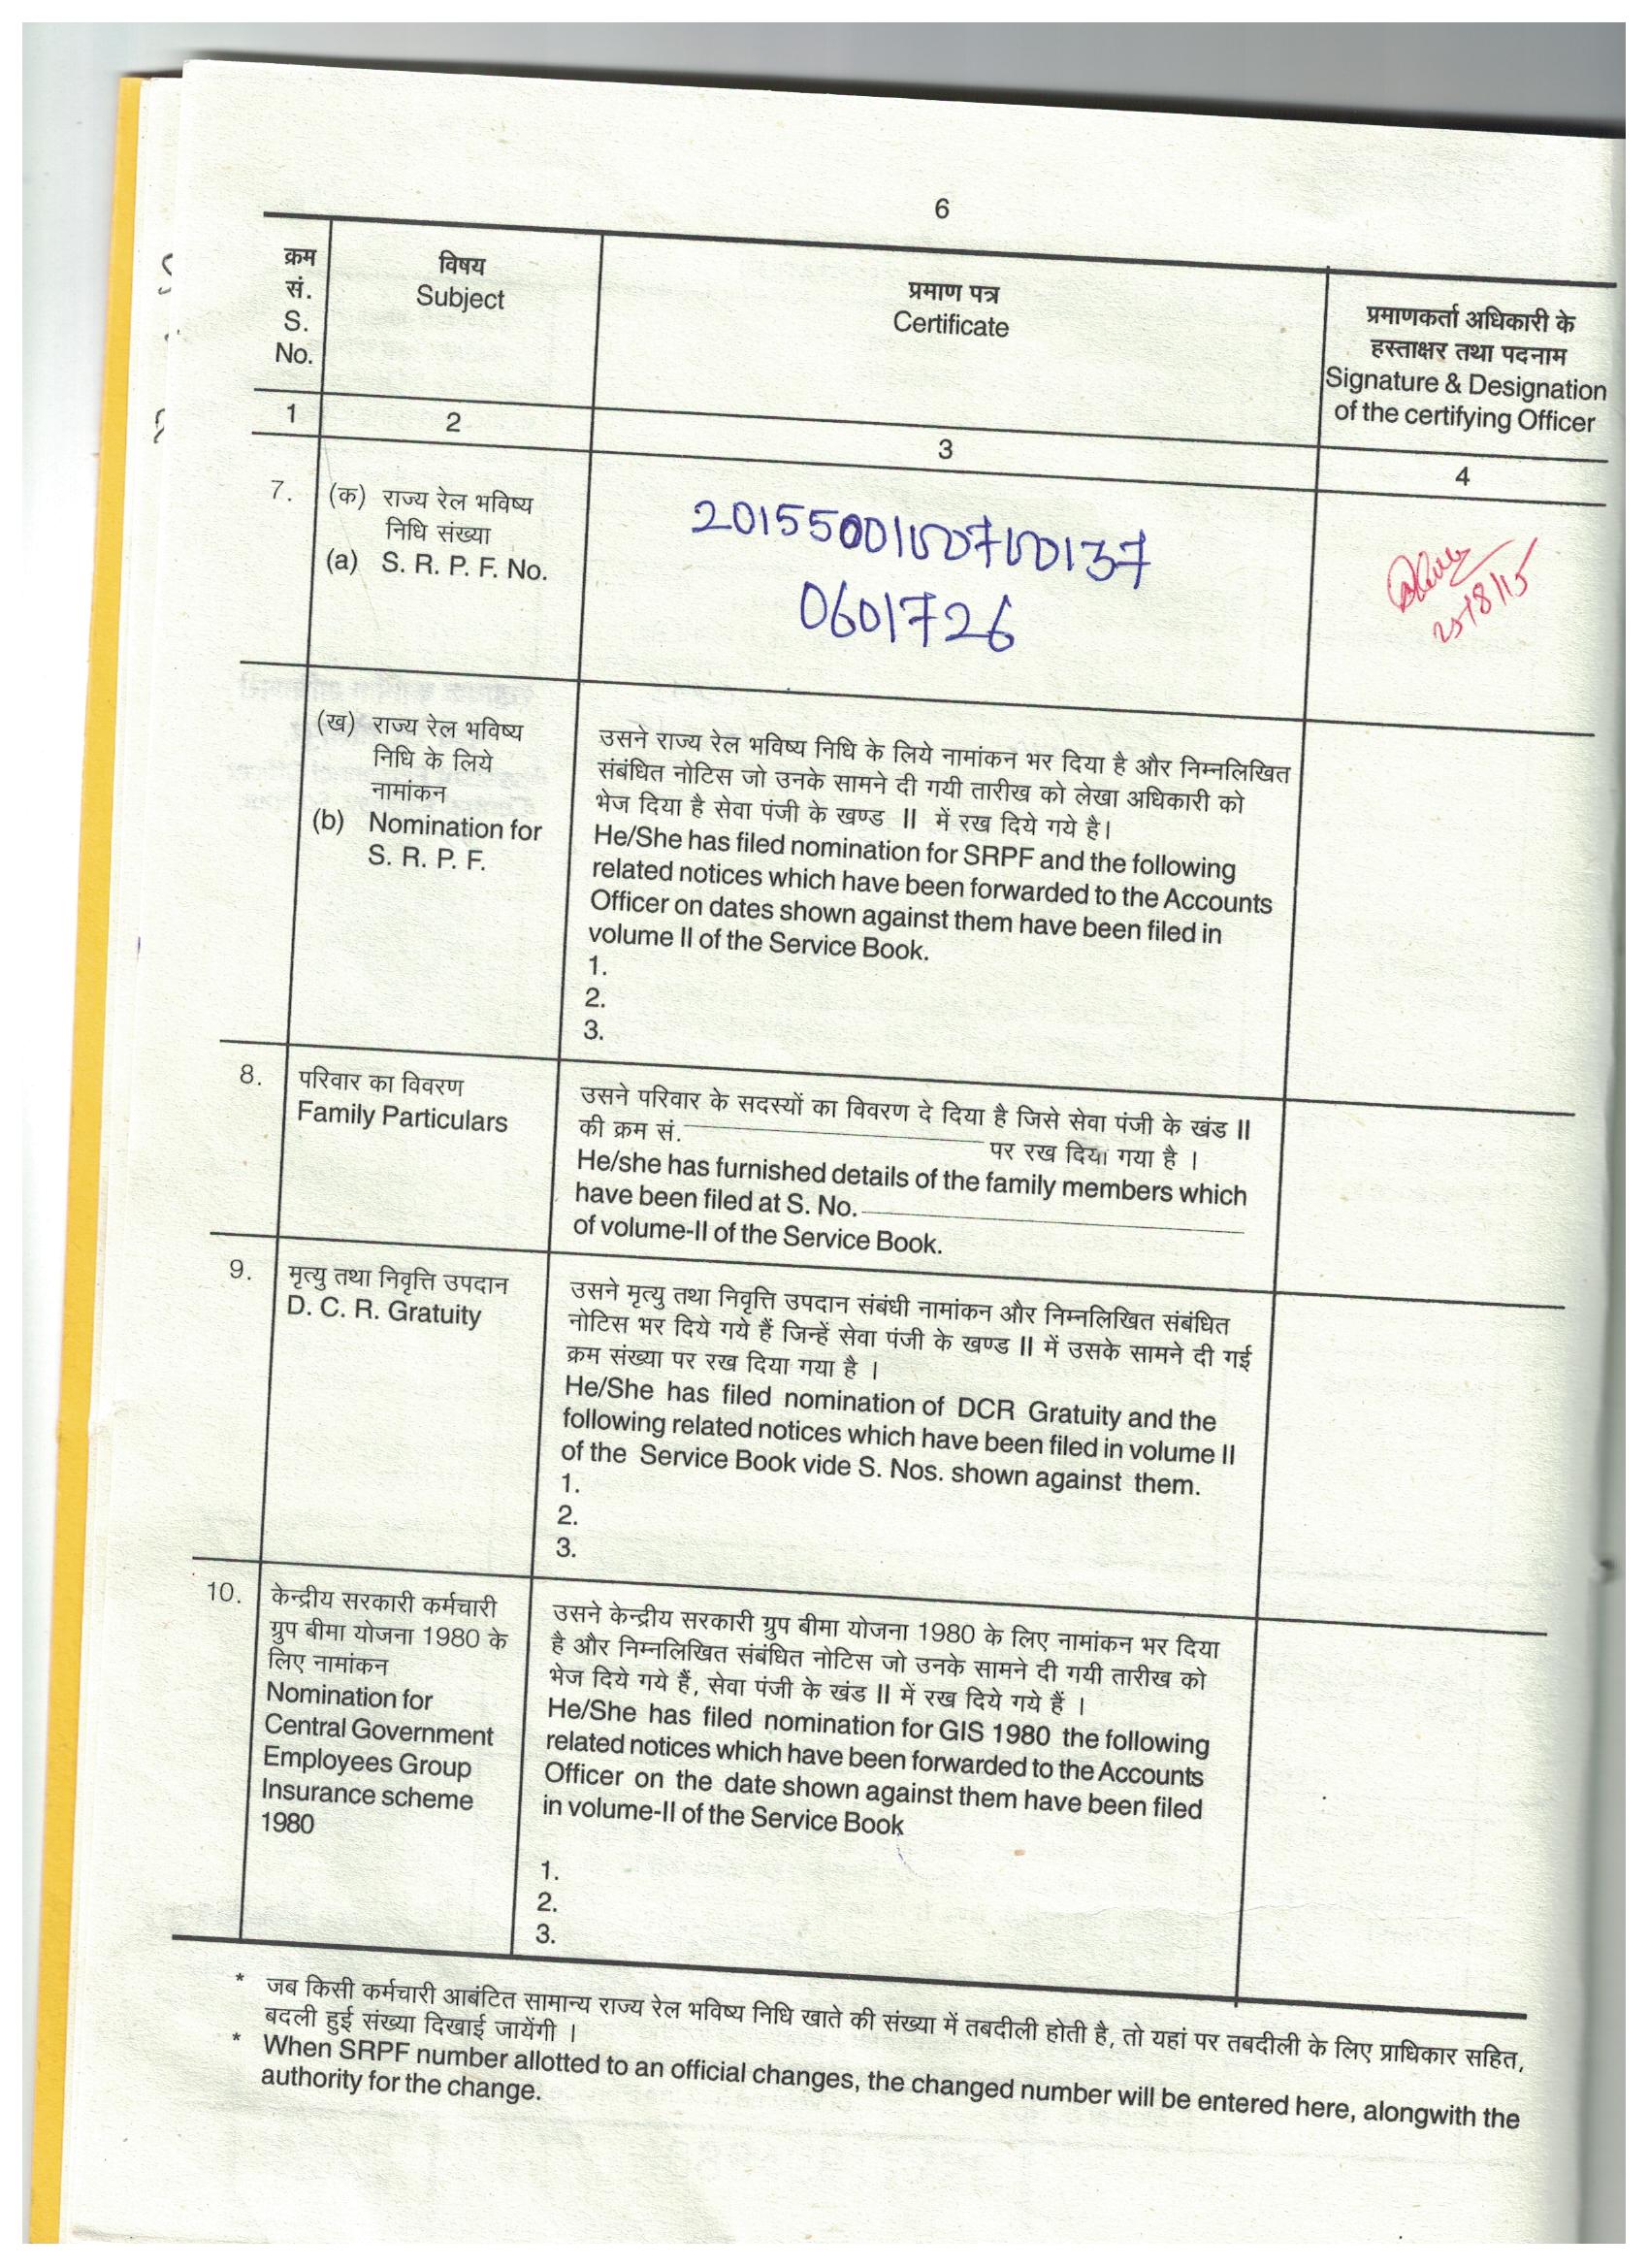 6
क्रम
सं.
S.
No.
विषय
Subject
प्रमाण पत्र
Certificate
प्रमाणकर्ता अधिकारी के
हस्ताक्षर तथा पदनाम
Signature & Designation
of the certifying Officer
1
2
3
4
7.
(क) राज्य रेल भविष्य
निधि संख्या
(a) S. R. P. F. No.
0601726
(ख) राज्य रेल भविष्य
निधि के लिये
नामांकन
(b) Nomination for
S. R. P. F.
उसने राज्य रेल भविष्य निधि के लिये नामांकन भर दिया है और निम्नलिखित
संबंधित नोटिस जो उनके सामने दी गयी तारीख को लेखा अधिकारी को
भेज दिया है सेवा पंजी के खण्ड II में रख दिये गये है।
He/She has filed nomination for SRPF and the following
related notices which have been forwarded to the Accounts
Officer on dates shown against them have been filed in
volume II of the Service Book.
1.
2.
3.
8.
परिवार का विवरण
Family Particulars
उसने परिवार के सदस्यों का विवरण दे दिया है जिसे सेवा पंजी के खंड II
की क्रम सं. पर रख दिया गया है ।
He/she has furnished details of the family members which
have been filed at S. No.
of volume-II of the Service Book.
9.
मृत्यु तथा निवृत्ति उपदान
D. C. R. Gratuity
उसने मृत्यु तथा निवृत्ति उपदान संबंधी नामांकन और निम्नलिखित संबंधित
नोटिस भर दिये गये हैं जिन्हें सेवा पंजी के खण्ड II में उसके सामने दी गई
क्रम संख्या पर रख दिया गया है ।
He/She has filed nomination of DCR Gratuity and the
following related notices which have been filed in volume II
of the Service Book vide S. Nos. shown against them.
1.
2.
3.
10.
केन्द्रीय सरकारी कर्मचारी
ग्रुप बीमा योजना 1980 के
लिए नामांकन
Nomination for
Central Government
Employees Group
Insurance scheme
1980
उसने केन्द्रीय सरकारी ग्रुप बीमा योजना 1980 के लिए नामांकन भर दिया
है और निम्नलिखित संबंधित नोटिस जो उनके सामने दी गयी तारीख को
भेज दिये गये हैं, सेवा पंजी के खंड II में रख दिये गये हैं ।
He/She has filed nomination for GIS 1980 the following
related notices which have been forwarded to the Accounts
Officer on the date shown against them have been filed
in volume-II of the Service Book
1.
2.
3.
* जब किसी कर्मचारी आबंटित सामान्य राज्य रेल भविष्य निधि खाते की संख्या में तबदीली होती है, तो यहां पर तबदीली के लिए प्राधिकार सहित,
बदली हुई संख्या दिखाई जायेंगी ।
* When SRPF number allotted to an official changes, the changed number will be entered here, alongwith the
authority for the change.